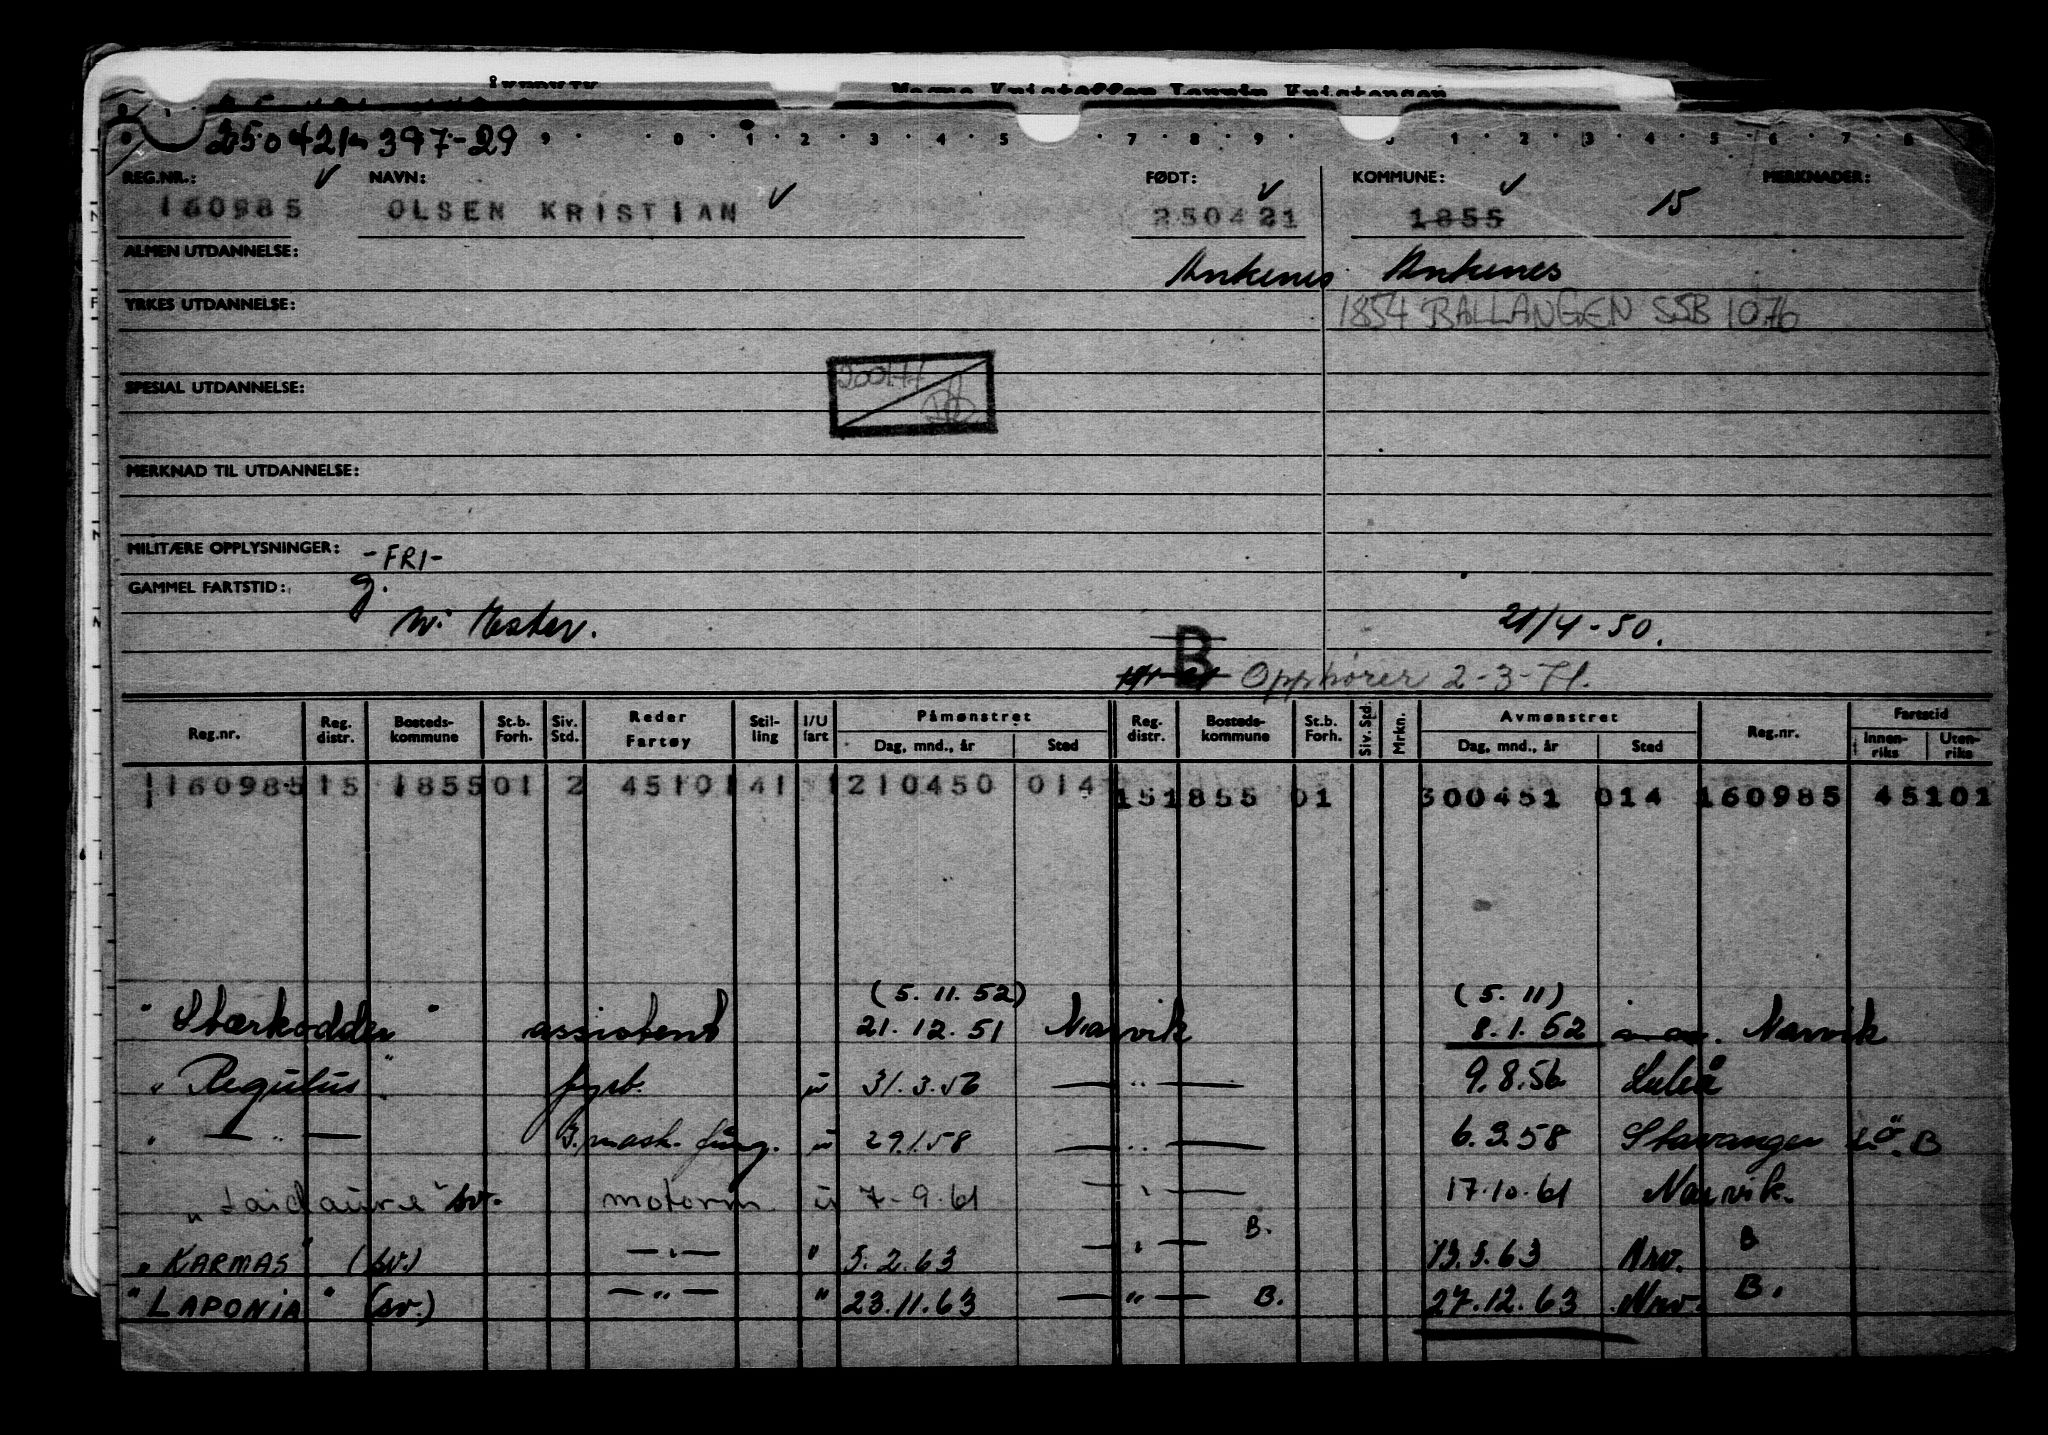 250421 397-29
9 0 1 2 3 4 5 7 8 9 1 2 3 4 5 6 7 8
REG.NR.: NAVN: FØDT: KOMMUNE: MERKNADER:
160985 OLSEN KRISTIAN 250421 1855 15
ALMEN UTDANNELSE: Ankenes Ankenes
YRKES UTDANNELSE: 1854 BALLANGEN SSB 10.76
SPESIAL UTDANNELSE:
MERKNAD TIL UTDANNELSE:
MILITÆRE OPPLYSNINGER: -FRI-
GAMMEL FARTSTID: g.
M. Ester. 21/4-50.
B Opphører 2-3-71.
Reg.nr. Reg. distr. Bosteds-kommune St.b. Forh. Siv. Std. Reder Fartøy Stil-ling I/U fart Påmønstret Dag, mnd., år Sted Reg. distr. Bosteds-kommune St.b. Forh. Siv. Std. Mrkn. Avmønstret Dag, mnd., år Sted Reg.nr. Fartstid Innen-riks Uten-riks
1160985 15 1855 01 2 45101 41 1 210450 014 15 1855 01 300451 014 160985 45101
(5.11.52) (5.11)
"Stærkodder" assistent 21.12.51 Narvik 8.1.52 Narvik
"Regulus" fyrb. u 31.3.56 — " — 9.8.56 Luleå
" — " — 3. mask. fung. u 29.1.58 — " — 6.9.58 Stavanger s.ö. B
"Laidaure" sv. motorm u 7-9.61 — " — 17.10.61 Narvik.
"KARMAS" (sv.) — " — " 5.2.63 — " — B. 13.3.63 Nrv. B
"LAPONIA" (sv.) — " — " 23.11.63 — " — B. 27.12.63 Nrv. B.